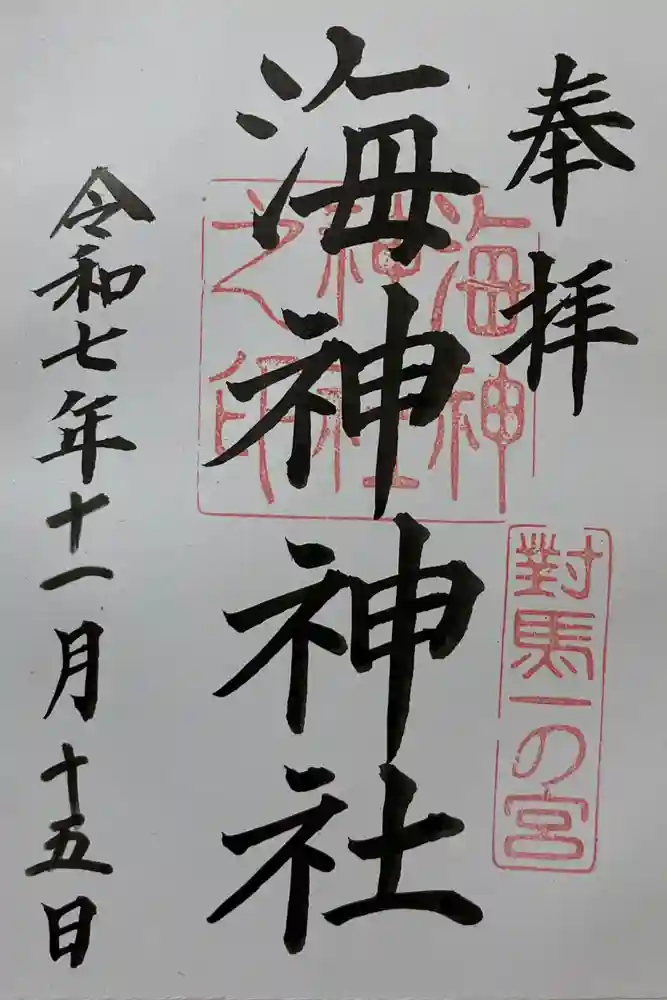 奉拝
對馬一の宮
海神神社
海神
神社
之印
令和七年十一月十五日